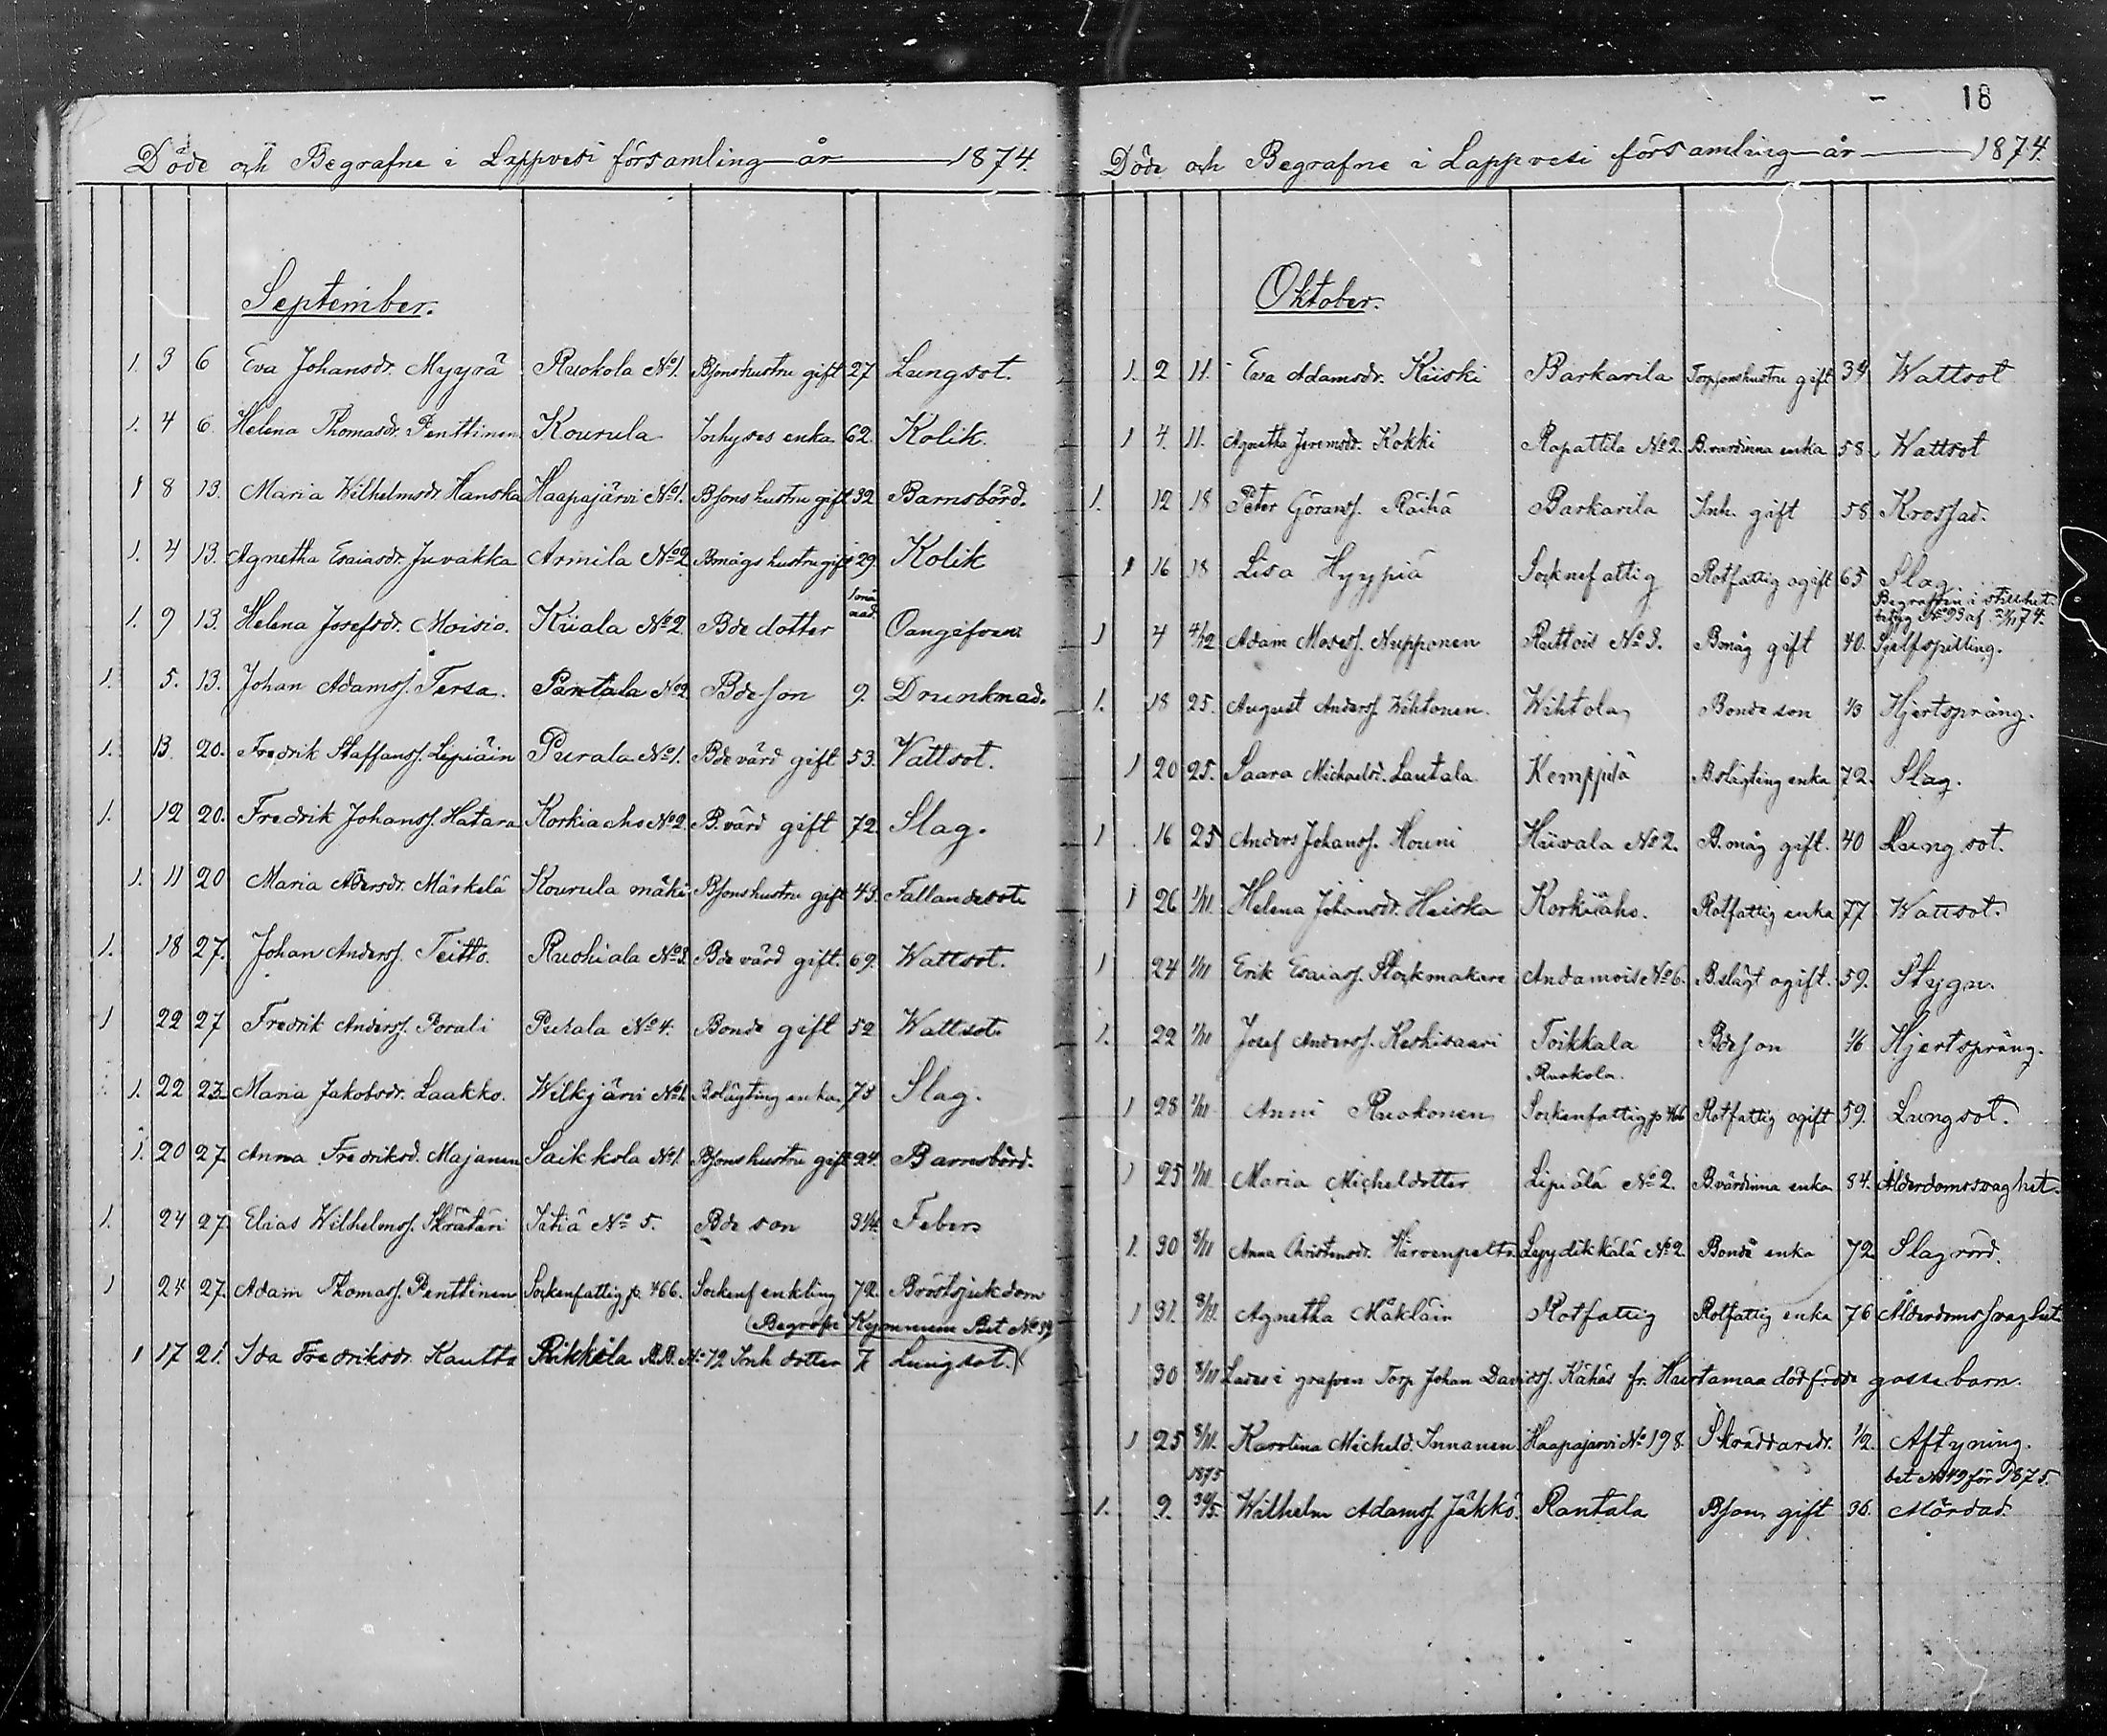 Döde och Begrafne i Lappvesi församling år 1874.
September.
1. 3 6 Eva Johansdr. Myyrä Ruohola No 1. Bsonshustru gift 27 Lungsot.
1. 4 6. Helena Thomasdr. Penttinen Kourula Inhyses enka 62. Kolik.
1 8 13. Maria Wilhelmsdr. Hanska Haapajärvi No 1. Bsons hustru gift 32 Barnsbörd.
1. 4 13. Agnetha Esaiasdr. Juvakka Armila No 2 Bmågs hustru gift 29. Kolik
1 9 13. Helena Josefsdr. Moisio. Kiiala No 2. Bde dotter Oangifven
1. 5. 13. Johan Adamss. Tersa. Pantala No 2 Bdeson 9. Drunknad.
1. 13. 20. Fredrik Staffanss. Lepiäin Purala No 1. Bde värd gift 53. Vattsot.
1. 12 20. Fredrik Johanss. Hatara Korkiaho No 2. B. värd gift 72 Slag.
1. 11 20 Maria Adersdr. Märkelä Kourula mäki Bsonshustru gift 43. Fallandesot
1. 18 27. Johan Anderss. Teitto. Ruohiala No 3. Bde värd gift. 69. Wattsot.
1 22 27 Fredrik Anderss. Porali Purala No 4. Bonde gift 52 Wattsot.
1. 22 23. Maria Jakobsdr. Laakko. Wilkjärvi No 1. Bslägting enka 73 Slag.
1. 20 27 Anna Fredriksd. Majanen Saikkola No 1. Bsonshustru gift 24. Barnsbörd.
1. 24 27. Elias Wilhelmss. Skrätäri Jätiä No 5. Bde son 3 1/4. Feber
1 24 27. Adam Thomass. Penttinen Sockenfattig p. 466. Sockenf enkling 72. Bröstsjukdom
Begrofs i Kymmene Bet No 39
1 17 21. Ida Fredriksdr. Kautto Rikkilä R.B. No 72 Inh dotter Lungsot.
18
Döde och Begrafne i Lappvesi församling år 1874.
Oktober.
1. 2 11. Eva Adamsdr. Kiiski Barkarila Torpsonshustru gift 39 Wattsot
1 4. 11. Agnetha Jeremsdr. Kokki Rapattila No 2. B. värdinna enka 58. Wattsot
1. 12 18 Peter Göranss. Räihä Barkarila Inh. gift 58 Krossad.
1 16 18 Lisa Hyypiä Socknefattig Rotfattig ogift 65 Slag.
Begrafven i stillhet.
1 4 4/12 Adam Mosess. Nupponen Ruttois No 3. Bmåg gift 40. Sjelfspilling.
1. 18 25. August Anderss. Wihtonen. Wihtola Bonde son 1/3 Hjertsprång.
1 20 25. Saara Michaelsd. Lautala Kemppilä B. slägting enka 72. Slag.
1 16 25 Anders Johanss. Houni Hiivala No 2. B. måg gift. 40 Lung sot.
1 26 1/11. Helena Johansdr. Heiska Korkiiaho. Rotfattig enka 77 Wattsot.
1 24 1/11 Erik Esaiass. Stockmakare Andamois No 6. B. slägt ogift. 59. Stygn.
1. 22 1/11 Josef Anderss. Keskisaari Toikkala Bdeson 1/6 Hjertsprång.
Ruokola.
1 28 1/11 Anni Ruokonen Sockenfattig p 466 Rotfattig ogift 59. Lungsot.
1 25 1/11 Maria Micheldotter Lipiälä No 2. B. värdinna enka 84. Ålderdomssvaghet.
1. 30 8/11 Anna Christensdr. Härvenpelto Lyydikkälä No 2. Bonde enka 72 Slagrörd.
1 31. 8/11. Agnetha Mäkläin Rotfattig Rotfattig enka 76 Ålderdomssvaghet
30 8/11 Lades i grafven Torp Johan Davidss. Kähäs fr. Haistamaa dödfödde gosse barn.
1 25 8/11. Karolina Micheld. Innanen Haapajärvi No 198. Skräddaredr. 1/2. Aftyning.
1875 bet No 49 för 1875.
1. 9. 30/5. Wilhelm Adamss. Jäkkö. Rantala Bson gift 36. Mördad.